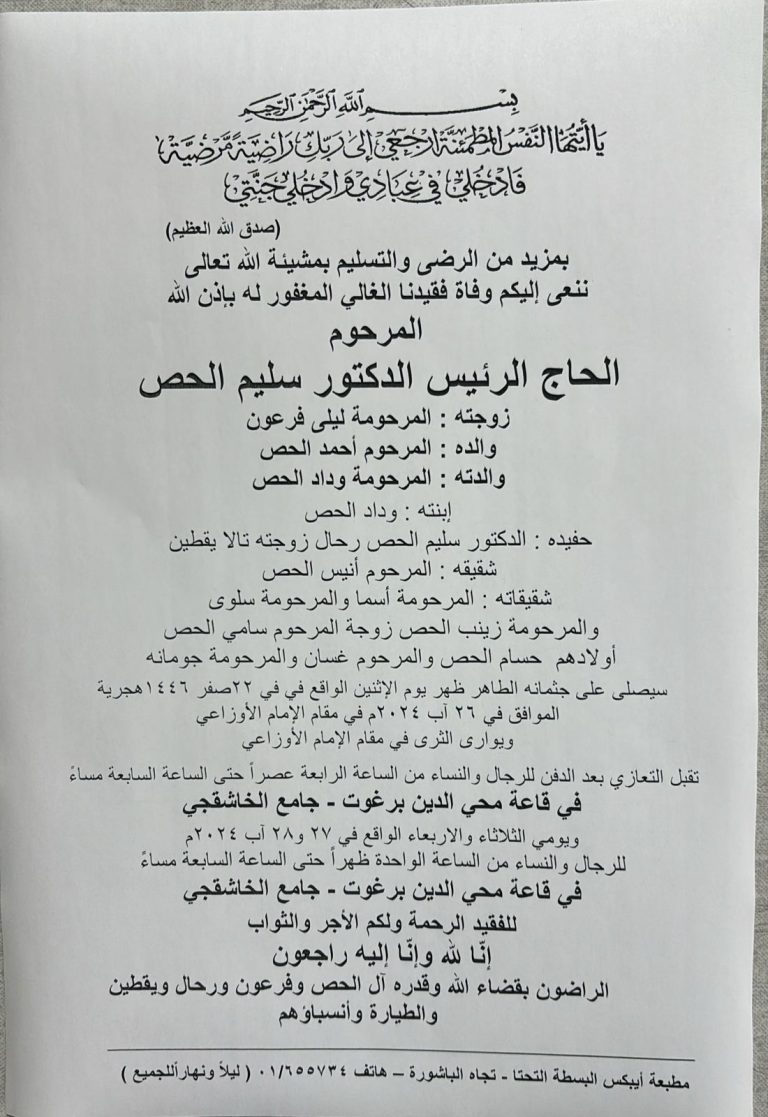 بِسْمِ اللَّهِ الرَّحْمَٰنِ الرَّحِيمِ
يَا أَيَّتُهَا النَّفْسُ المُطْمَئِنَّةُ ارْجِعِي إِلَى رَبِّكِ رَاضِيَةً مَّرْضِيَّةً
فَادْخُلِي فِي عِبَادِي وَادْخُلِي جَنَّتِي
(صدق الله العظيم)
بمزيد من الرضى والتسليم بمشيئة الله تعالى
ننعى إليكم وفاة فقيدنا الغالي المغفور له بإذن الله
المرحوم
الحاج الرئيس الدكتور سليم الحص
زوجته : المرحومة ليلى فرعون
والده : المرحوم أحمد الحص
والدته : المرحومة وداد الحص
إبنته : وداد الحص
حفيده : الدكتور سليم الحص رحال زوجته تالا يقطين
شقيقه : المرحوم أنيس الحص
شقيقاته : المرحومة أسما والمرحومة سلوى
والمرحومة زينب الحص زوجة المرحوم سامي الحص
أولادهم حسام الحص والمرحوم غسان والمرحومة جومانه
سيصلى على جثمانه الطاهر ظهر يوم الإثنين الواقع في في ٢٢صفر ١٤٤٦هجرية
الموافق في ٢٦ آب ٢٠٢٤م في مقام الإمام الأوزاعي
ويوارى الثرى في مقام الإمام الأوزاعي
تقبل التعازي بعد الدفن للرجال والنساء من الساعة الرابعة عصراً حتى الساعة السابعة مساءً
في قاعة محي الدين برغوت - جامع الخاشقجي
ويومي الثلاثاء والاربعاء الواقع في ٢٧ و٢٨ آب ٢٠٢٤م
للرجال والنساء من الساعة الواحدة ظهراً حتى الساعة السابعة مساءً
في قاعة محي الدين برغوت - جامع الخاشقجي
للفقيد الرحمة ولكم الأجر والثواب
إنّا لله وإنّا إليه راجعون
الراضون بقضاء الله وقدره آل الحص وفرعون ورحال ويقطين
والطيارة وأنسباؤهم
مطبعة أيبكس البسطة التحتا - تجاه الباشورة – هاتف ٠١/٦٥٥٧٣٤ ( ليلاً ونهاراًللجميع )